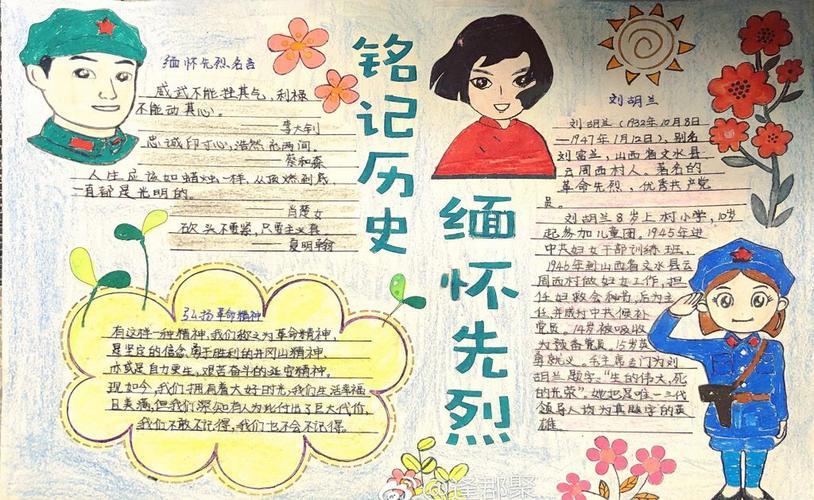 缅怀先烈名言
威武不能挫其气,利禄
不能动其心。
——李大钊
忠诚印寸心,浩然充两间。
——蔡和森
人生应该如蜡烛一样,从顶燃到底,
一直都是光明的。
——肖楚女
砍头不要紧,只要主义真。
——夏明翰
铭记历史
缅怀先烈
弘扬革命精神
有这样一种精神,我们称之为革命精神,
是坚定的信念,勇于胜利的井冈山精神,
亦或是自力更生,艰苦奋斗的延安精神。
现如今,我们拥有着大好时光,我们生活幸福
且美满,但我们深知有人为此付出了巨大代价,
我们不敢不记得,我们也不会不记得。
刘胡兰
刘胡兰(1932年10月8日
—1947年1月12日),别名
刘富兰,山西省文水县
云周西村人。著名的
革命先烈,优秀共产党
员。
刘胡兰8岁上村小学,10岁
起参加儿童团。1945年进
中共妇女干部训练班,
1946年到山西省文水县云
周西村做妇女工作,担
任妇救会秘书,后为主
任,并成为中共候补
党员。14岁被吸收
为预备党员。15岁英
勇就义。毛主席专门为刘
胡兰题字:“生的伟大,死
的光荣”,她也是唯一三代
领导人均为其题字的英
雄